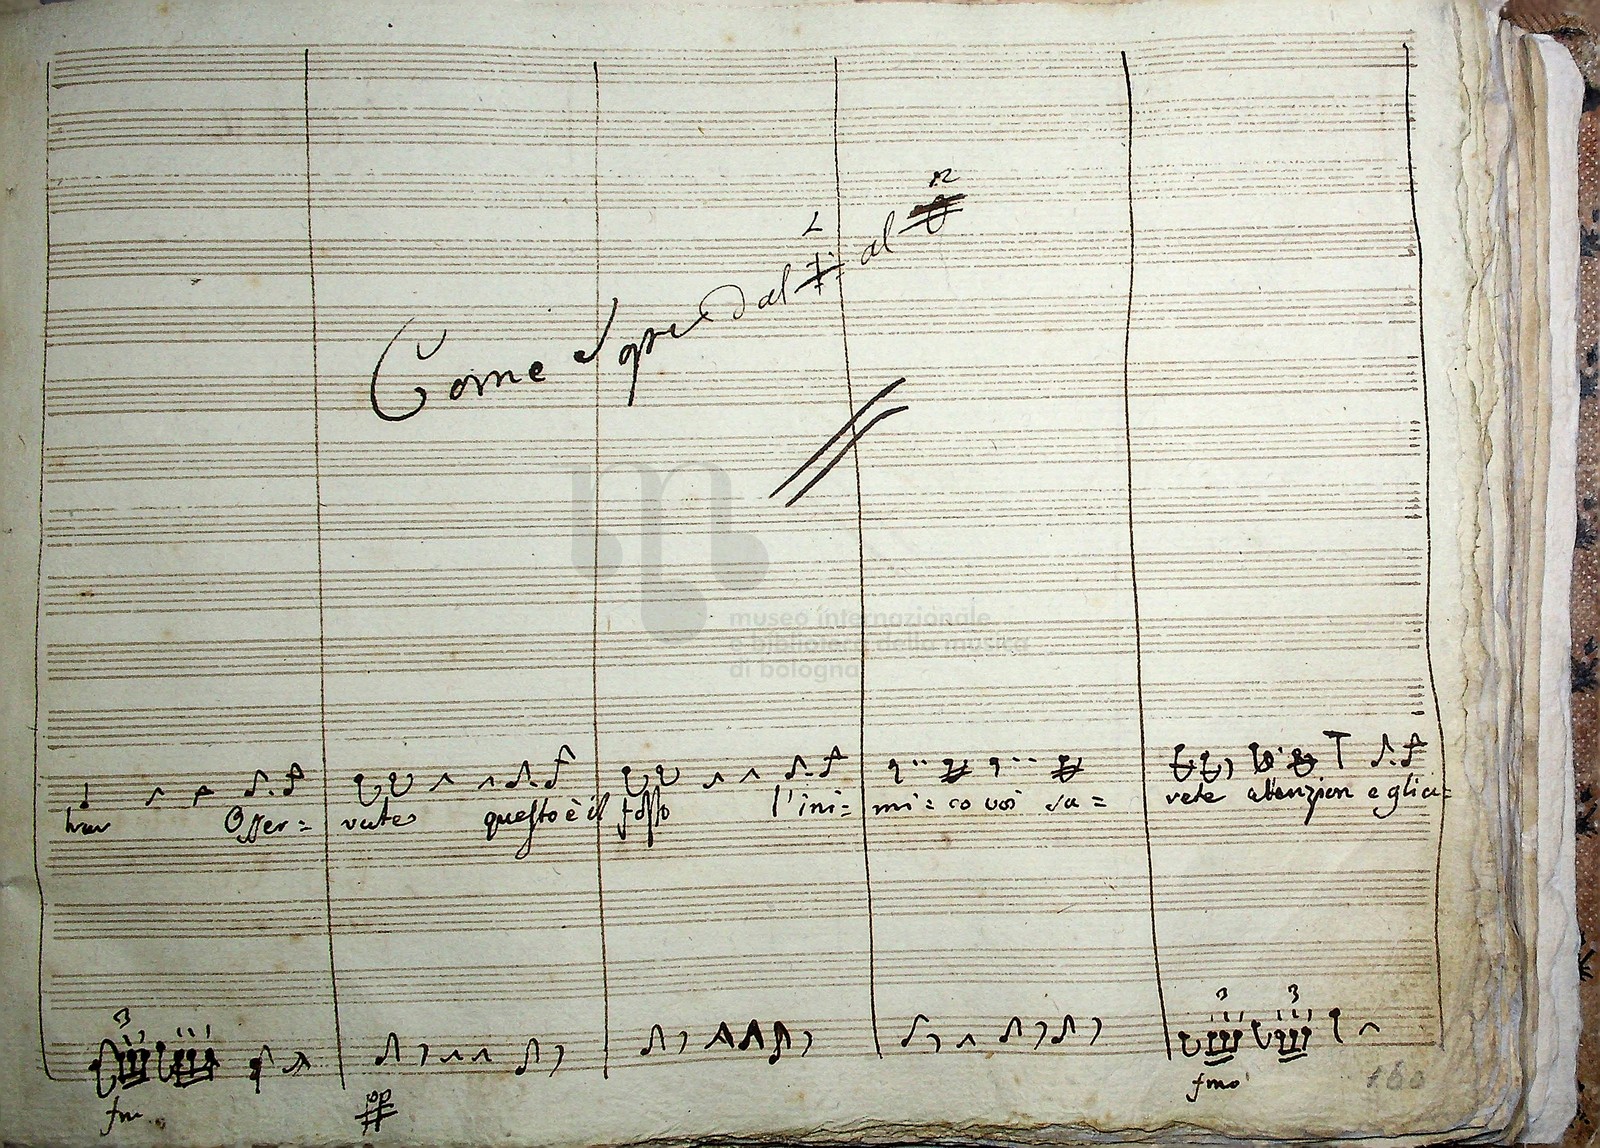 Come Sopra dal al
museo internazionale
e biblioteca della musica
di bologna
Osser= vate questo è il fosso l'ini= mi=co voi sa= rete attenzion e gli a=
3 3 3
fm pp fmo
160